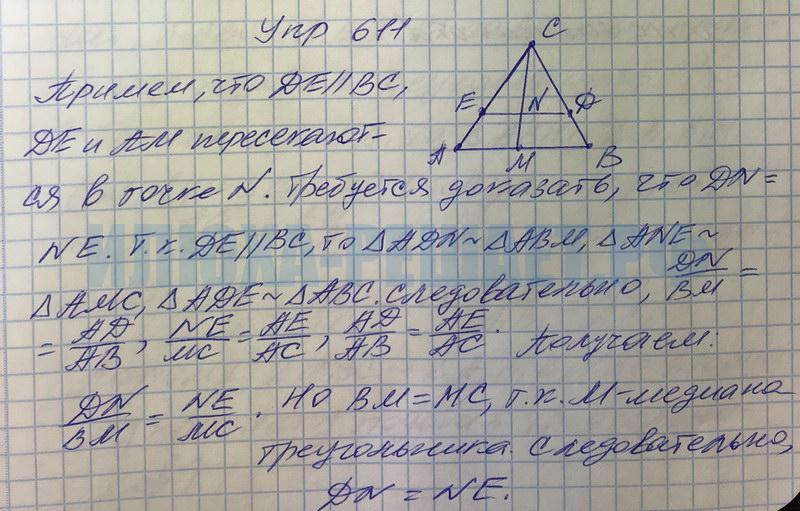 Упр 611
C
Примем, что DE||BC,
E N D
DE и AM пересекают-
A M B
ся в точке N. Требуется доказать, что DN=
NE. Т.к. DE||BC, то △ADN~△ABM, △ANE~
△AMC, △ADE~△ABC. Следовательно, DN/BM =
= AD/AB, NE/MC = AE/AC, AD/AB = AE/AC. Получаем:
DN/BM = NE/MC. Но BM=MC, т.к. M-медиана
треугольника. Следовательно,
DN = NE.